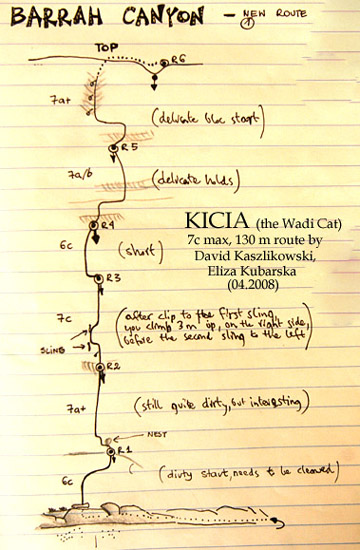 BARRAH CANYON – NEW ROUTE
1
TOP
R6
7a+
(delicate bloc start)
R5
7a/b
(delicate holds)
R4
KICIA (the Wadi Cat)
7c max, 130 m route by
David Kaszlikowski,
Eliza Kubarska
(04.2008)
6c
(short)
R3
7c
(after clip to the first sling,
you climb 3m up, on the right side,
before the second sling to the left)
SLING
R2
7a+
(still quite dirty, but interesting)
NEST
R1
6c
(dirty start, needs to be cleaned)